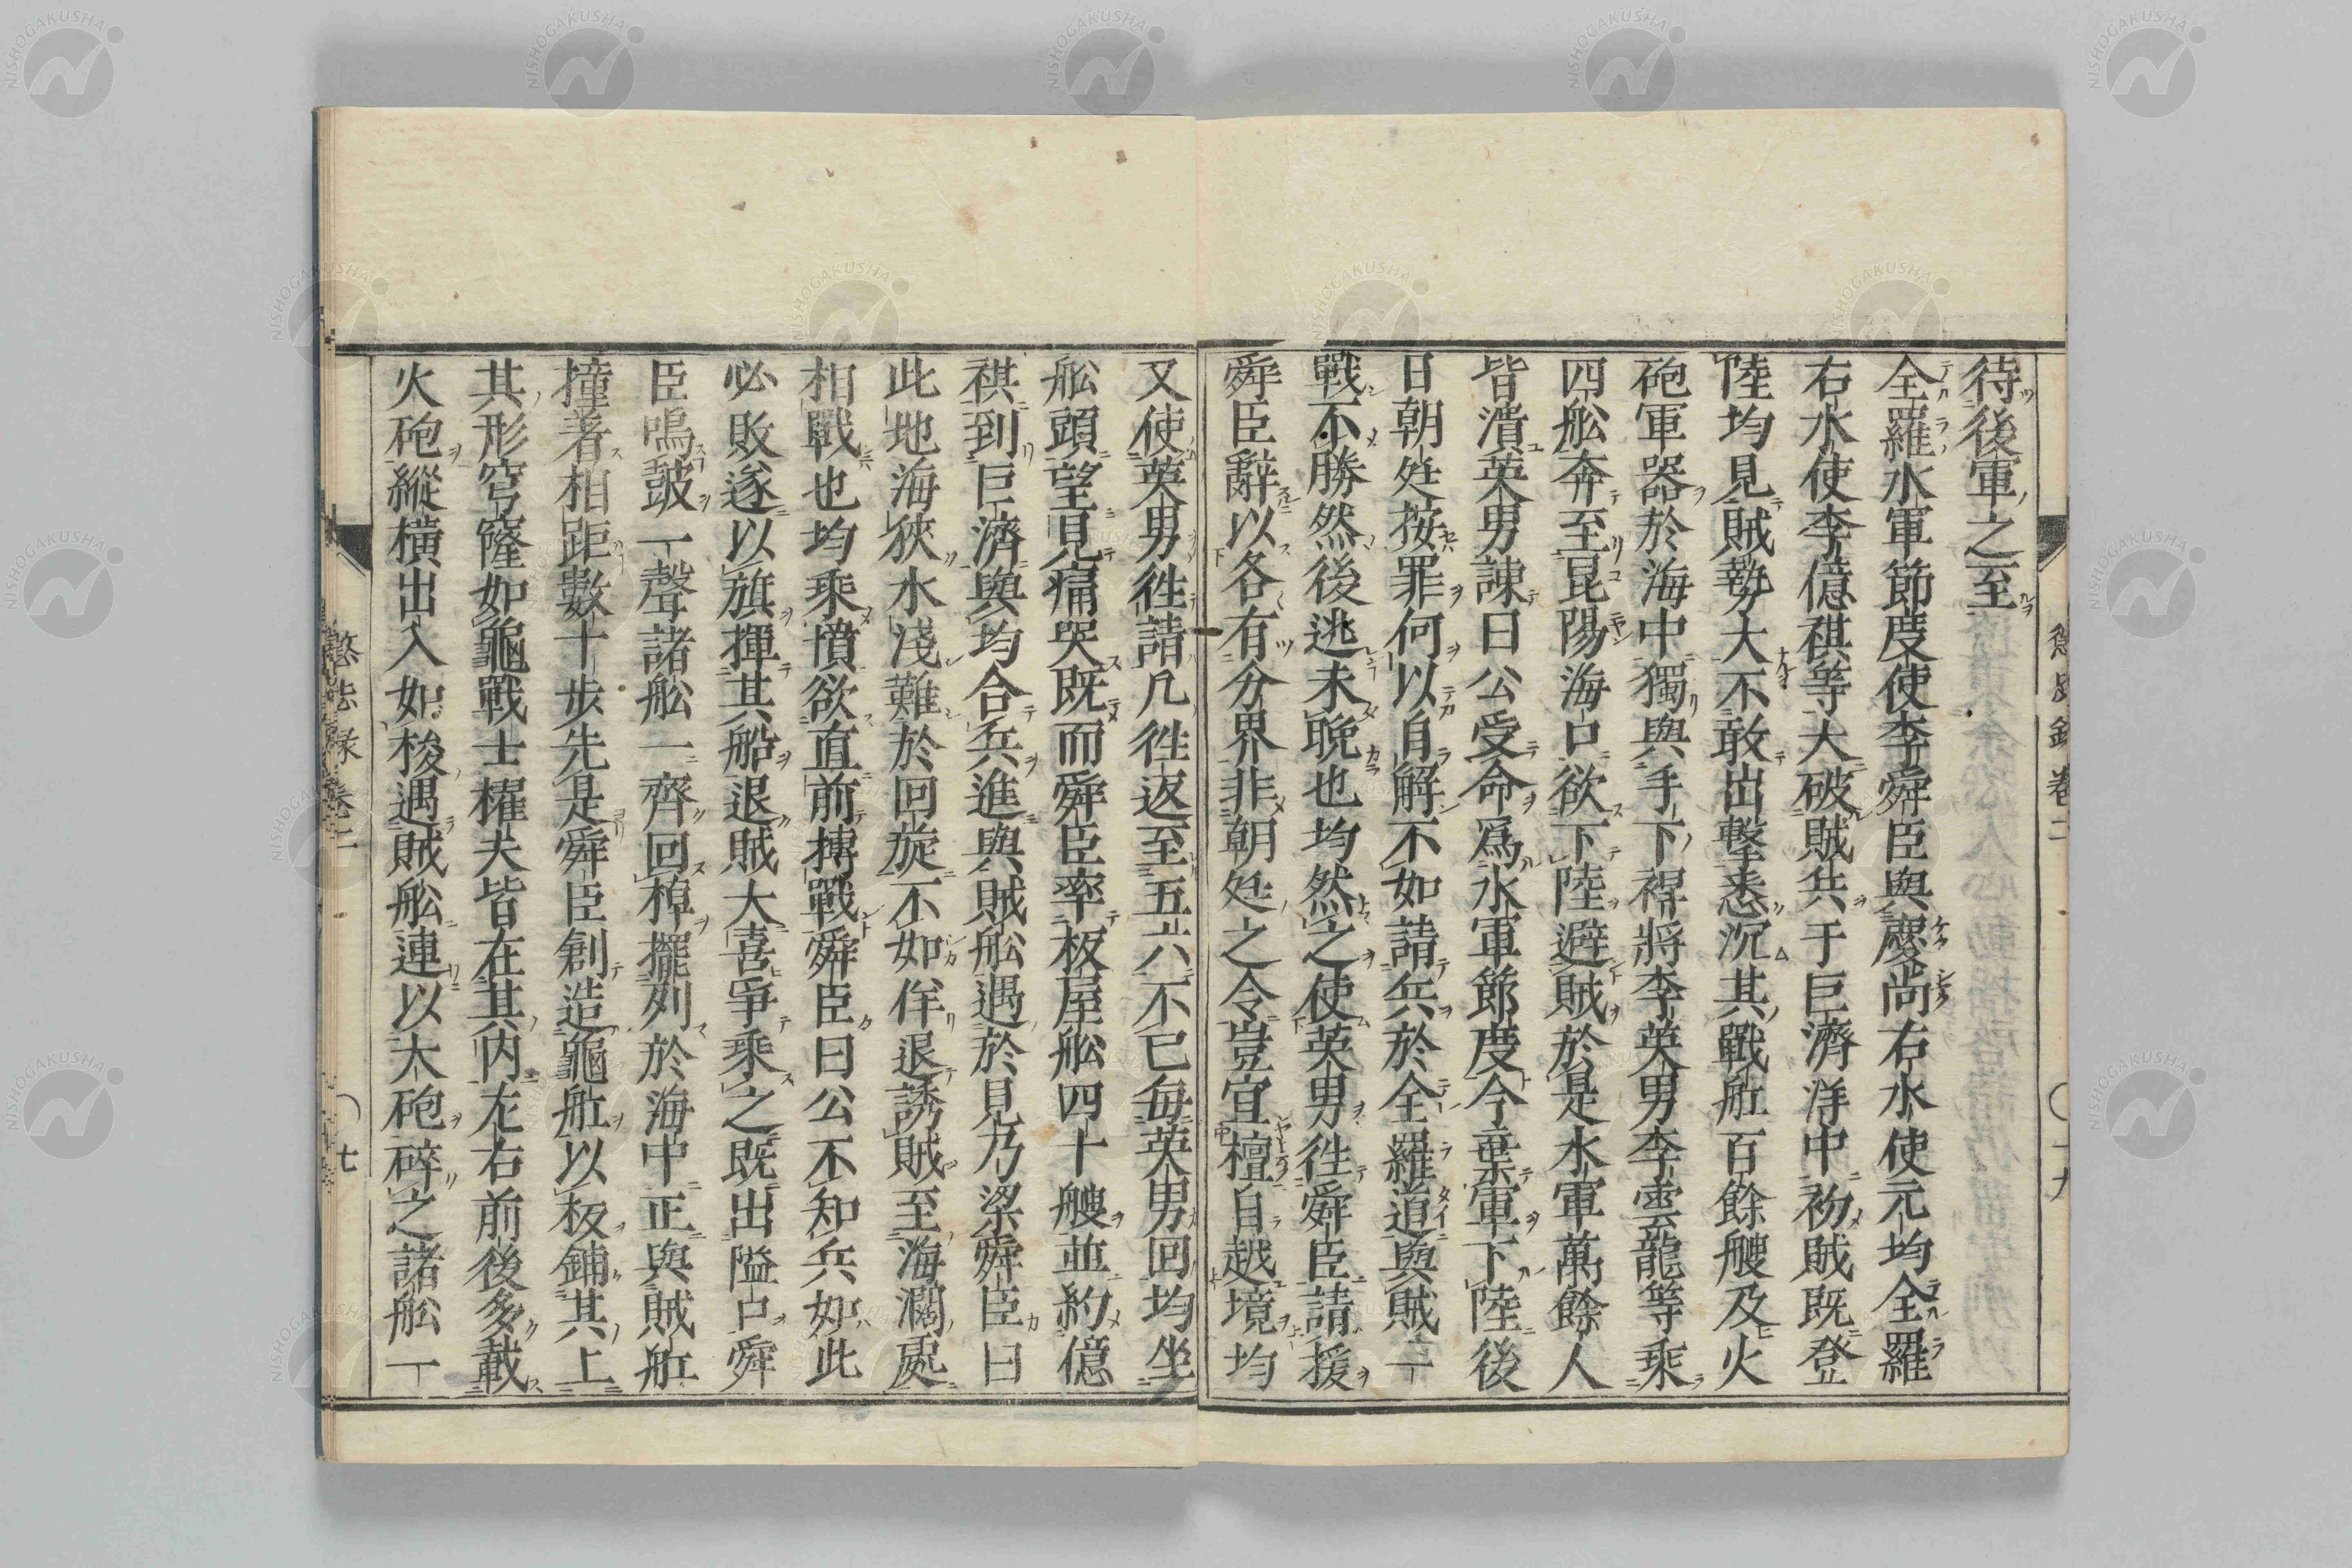 待後軍之至
全羅水軍節度使李舜臣與慶尚右水使元均全羅
右水使李億祺等大破賊兵于巨濟洋中初賊既登
陸均見賊勢大不敢出擊悉沉其戰舡百餘艘及火
砲軍器於海中獨與手下裨將李英男李雲龍等乘
四舩奔至昆陽海口欲下陸避賊於是水軍萬餘人
皆潰英男諫曰公受命爲水軍節度今棄軍下陸後
日朝廷按罪何以自解不如請兵於全羅道與賊一
戰不勝然後逃未晩也均然之使英男徃舜臣請援
舜臣辭以各有分界非朝廷之令豈宜擅自越境均
又使英男徃請凡徃返至五六不已每英男回均坐
舩頭望見痛哭既而舜臣率板屋舩四十艘並約億
祺到巨濟與均合兵進與賊舩遇於見乃梁舜臣曰
此地海狹水淺難於回旋不如佯退誘賊至海濶處
相戰也均乘憤欲直前搏戰舜臣曰公不知兵如此
必敗遂以旗揮其船退賊大喜爭乘之既出隘口舜
臣鳴皷一聲諸舩一齊回棹擺列於海中正與賊舡
撞著相距數十步先是舜臣創造龜舡以板鋪其上
其形穹窿如龜戰士櫂夫皆在其内左右前後多載
火砲縱横出入如梭遇賊舩連以大砲碎之諸舩一
懲毖録 卷二 〇 七
NISHOGAKUSHA